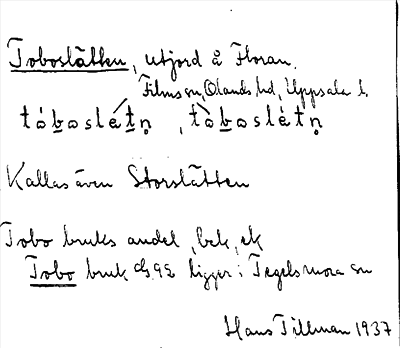 Toboslätten, utjord å Floran.
Films sn, Olands hd, Uppsala l.
tòbosletn, tòbosletn
Kallas även Storslätten
Tobo bruks andel, bek, ek
Tobo bruk ligger i Tegelsmora sn
Hans Tillman 1937